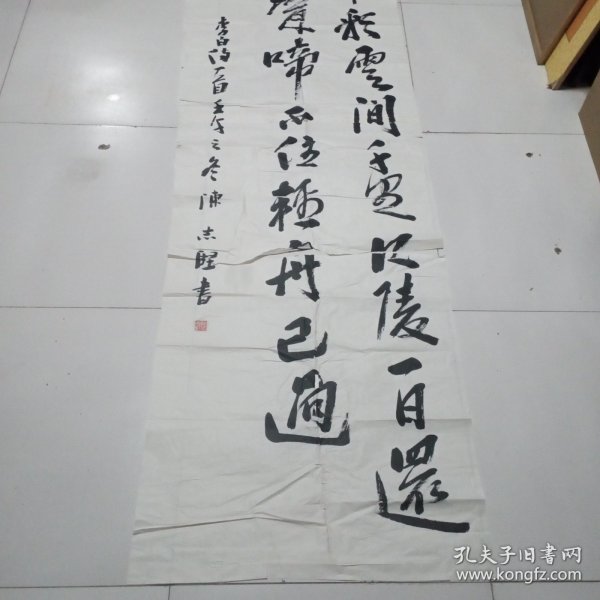 彩雲間千里江陵一日還
聲啼不住輕舟已過
李白詩一首壬午之冬陳志堅書
孔夫子旧書网
www.kongfz.com